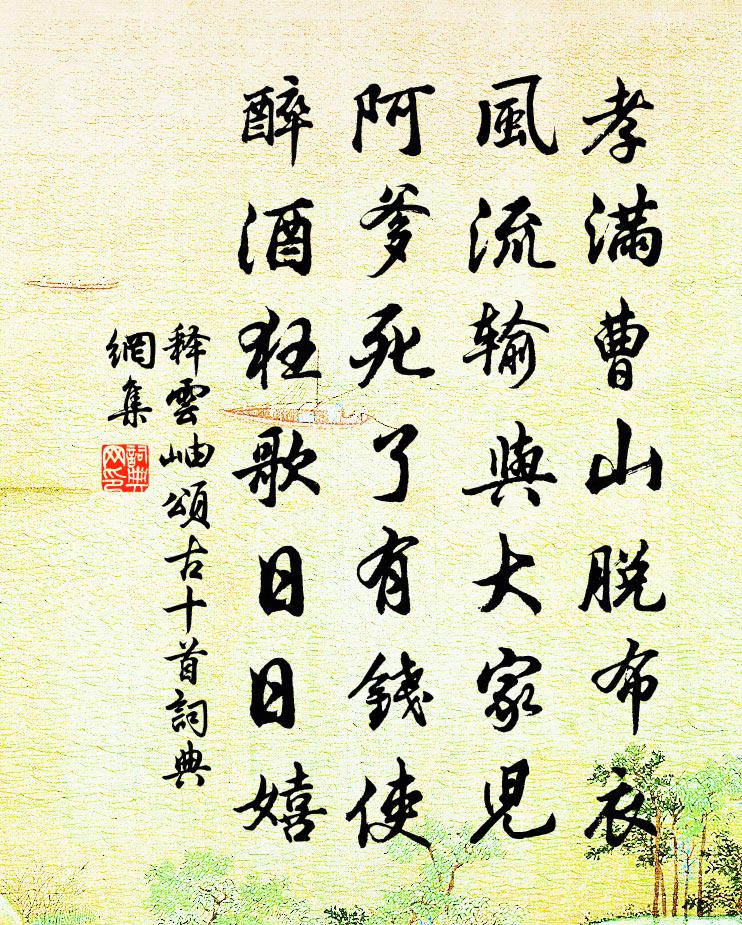 孝滿曹山脫布衣
風流输與大家兒
阿爹死了有錢使
醉酒狂歌日日嬉
释雲岫頌古十首詞典
網集
詞典
网印